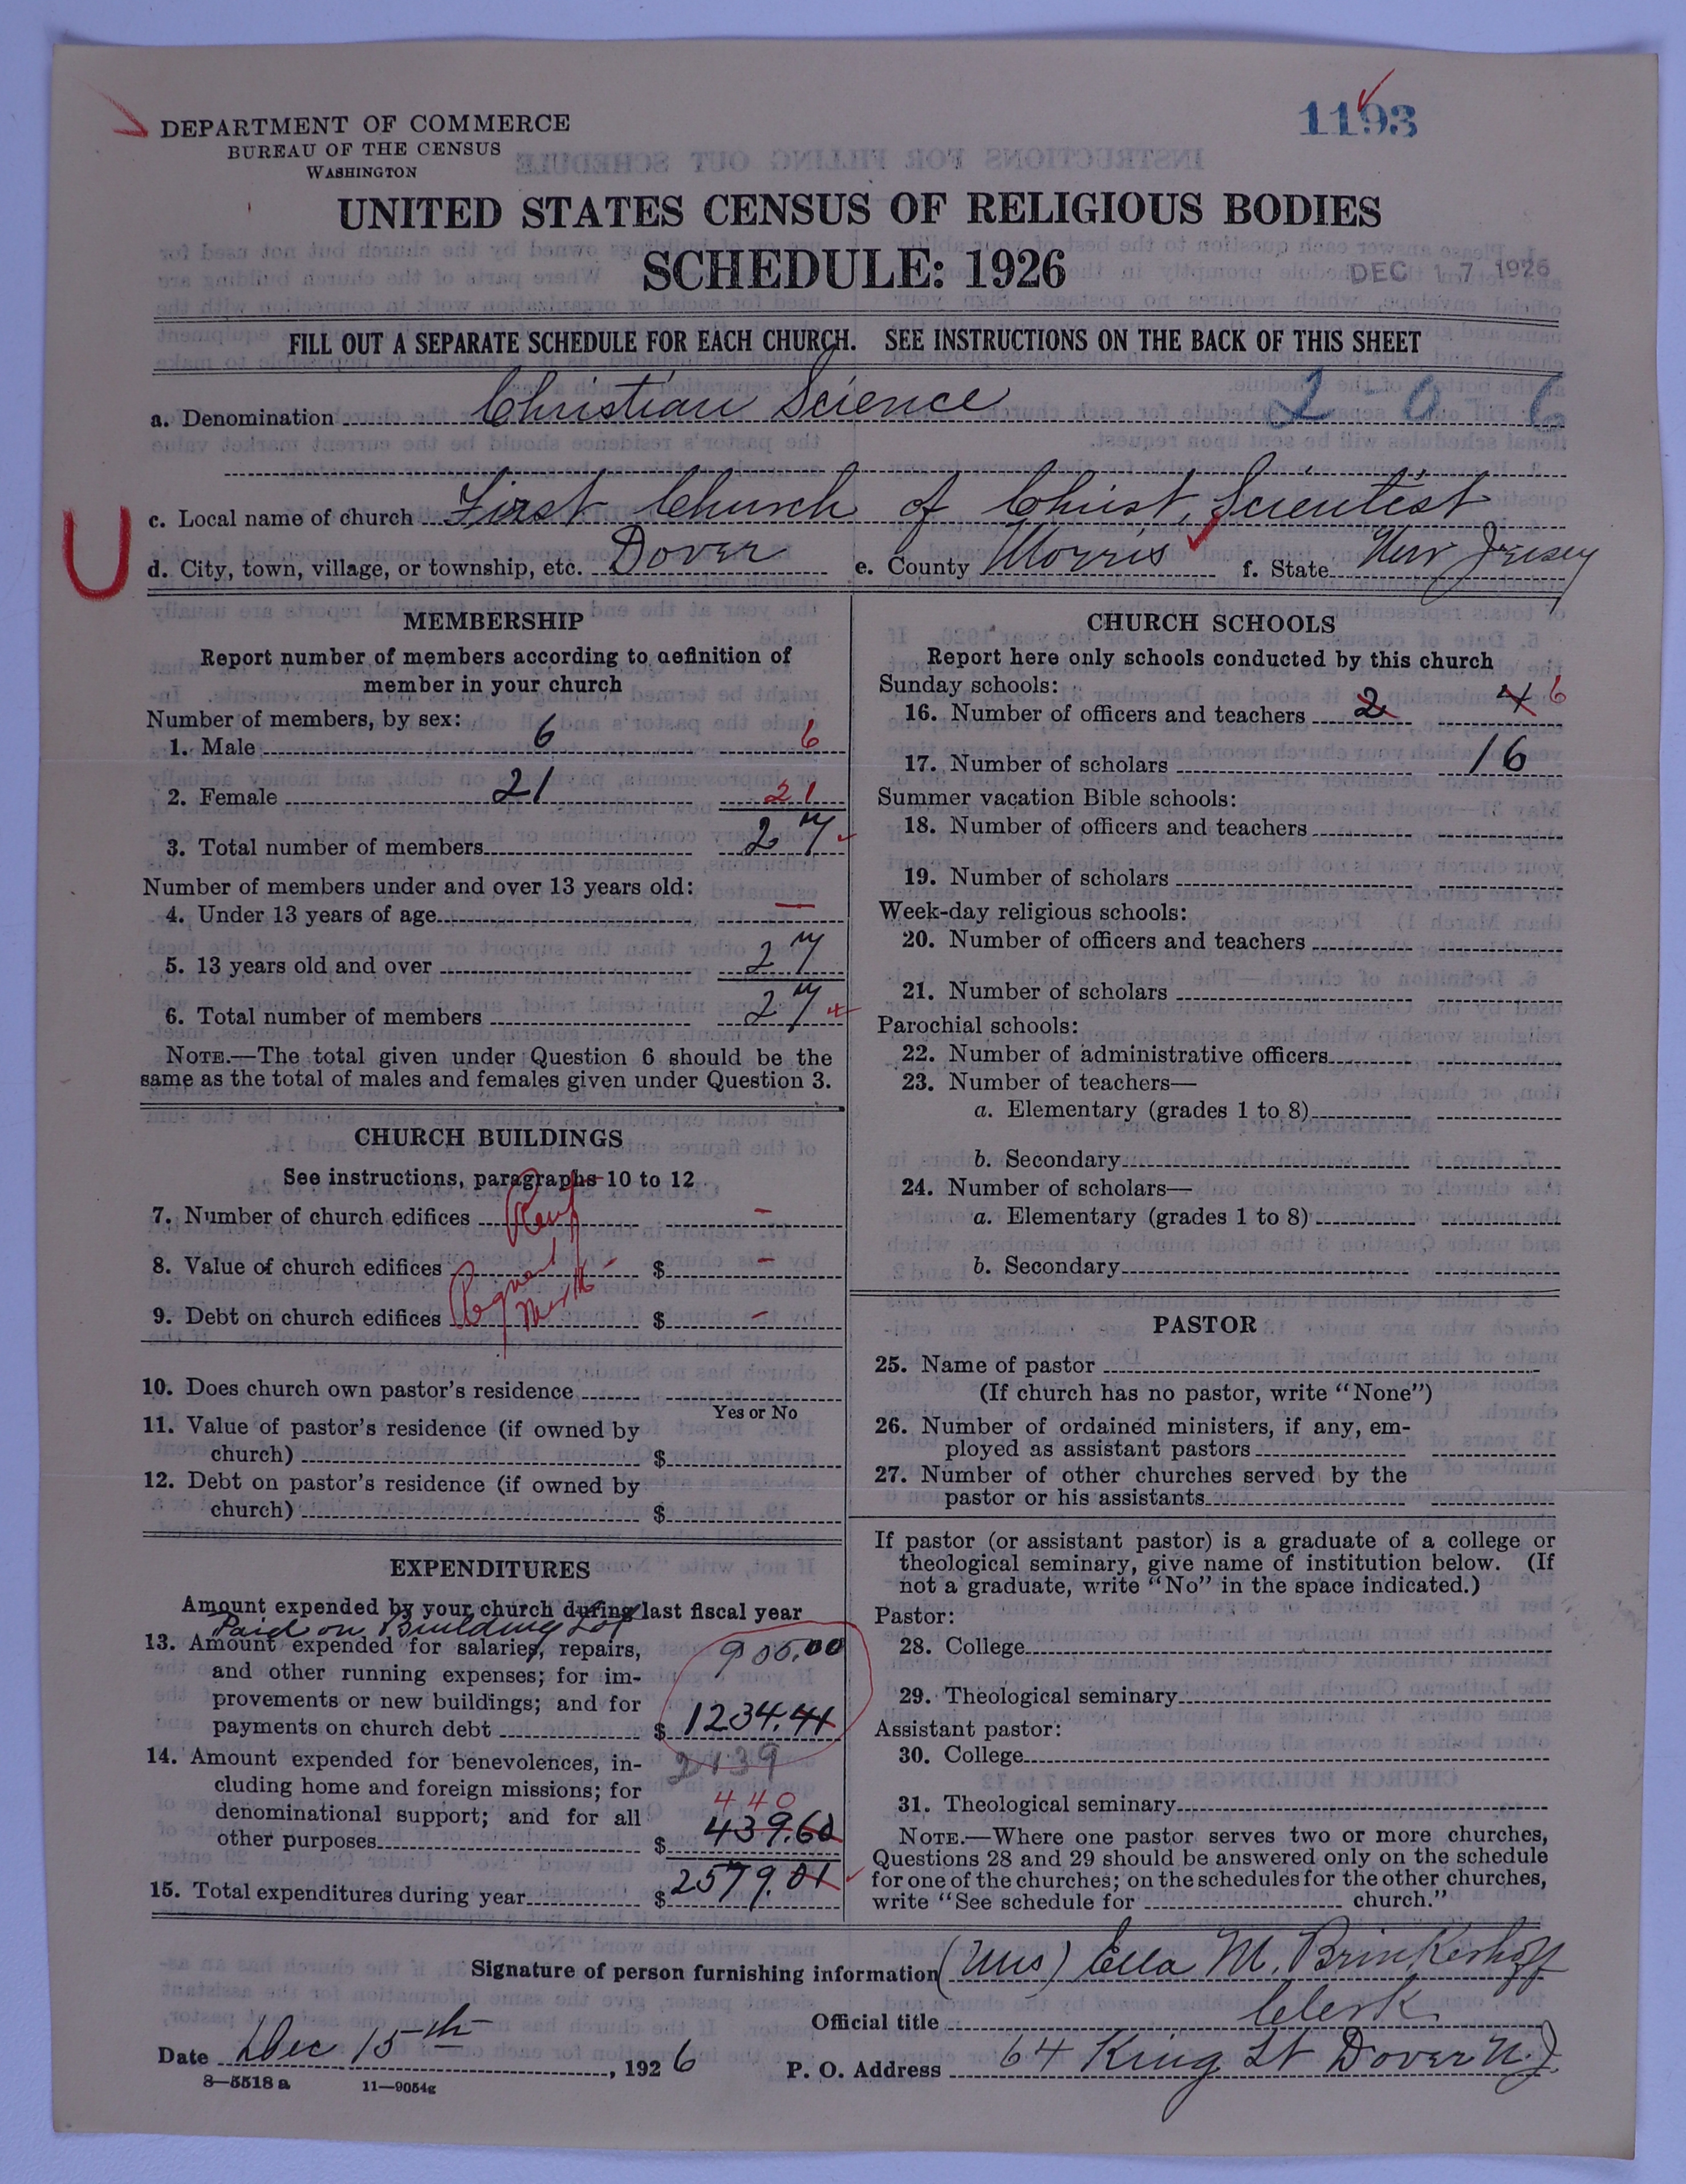 DEPARTMENT OF COMMERCE
BUREAU OF THE CENSUS
WASHINGTON
1193
UNITED STATES CENSUS OF RELIGIOUS BODIES
SCHEDULE: 1926
DEC 17 1926
FILL OUT A SEPARATE SCHEDULE FOR EACH CHURCH. SEE INSTRUCTIONS ON THE BACK OF THIS SHEET
a. Denomination Christian Science 2-0-6
c. Local name of church First Church of Christ, Scientist
d. City, town, village, or township, etc. Dover e. County Morris f. State New Jersey
MEMBERSHIP
Report number of members according to definition of
member in your church
Number of members, by sex:
1. Male 6 6
2. Female 21 21
3. Total number of members 27
Number of members under and over 13 years old:
4. Under 13 years of age —
5. 13 years old and over 27
6. Total number of members 27
NOTE.—The total given under Question 6 should be the
same as the total of males and females given under Question 3.
CHURCH BUILDINGS
See instructions, paragraphs 10 to 12
7. Number of church edifices Rent -
8. Value of church edifices $ -
9. Debt on church edifices $ -
10. Does church own pastor's residence
Yes or No
11. Value of pastor's residence (if owned by
church) $
12. Debt on pastor's residence (if owned by
church) $
EXPENDITURES
Amount expended by your church during last fiscal year
Paid on Building Lot
13. Amount expended for salaries, repairs, 905.00
and other running expenses; for im-
provements or new buildings; and for
payments on church debt $ 1234.41
2139
14. Amount expended for benevolences, in-
cluding home and foreign missions; for
440
denominational support; and for all
other purposes $ 439.60
15. Total expenditures during year $ 2579.01
CHURCH SCHOOLS
Report here only schools conducted by this church
Sunday schools:
16. Number of officers and teachers 2 4 6
17. Number of scholars 16
Summer vacation Bible schools:
18. Number of officers and teachers
19. Number of scholars
Week-day religious schools:
20. Number of officers and teachers
21. Number of scholars
Parochial schools:
22. Number of administrative officers
23. Number of teachers—
a. Elementary (grades 1 to 8)
b. Secondary
24. Number of scholars—
a. Elementary (grades 1 to 8)
b. Secondary
PASTOR
25. Name of pastor
(If church has no pastor, write "None")
26. Number of ordained ministers, if any, em-
ployed as assistant pastors
27. Number of other churches served by the
pastor or his assistants
If pastor (or assistant pastor) is a graduate of a college or
theological seminary, give name of institution below. (If
not a graduate, write "No" in the space indicated.)
Pastor:
28. College
29. Theological seminary
Assistant pastor:
30. College
31. Theological seminary
NOTE.—Where one pastor serves two or more churches,
Questions 28 and 29 should be answered only on the schedule
for one of the churches; on the schedules for the other churches,
write "See schedule for church."
Signature of person furnishing information (Mrs) Ella M. Brinkerhoff
Official title Clerk
Date Dec 15th, 1926 P. O. Address 64 King St Dover N.J.
8—5518 a 11—9054g